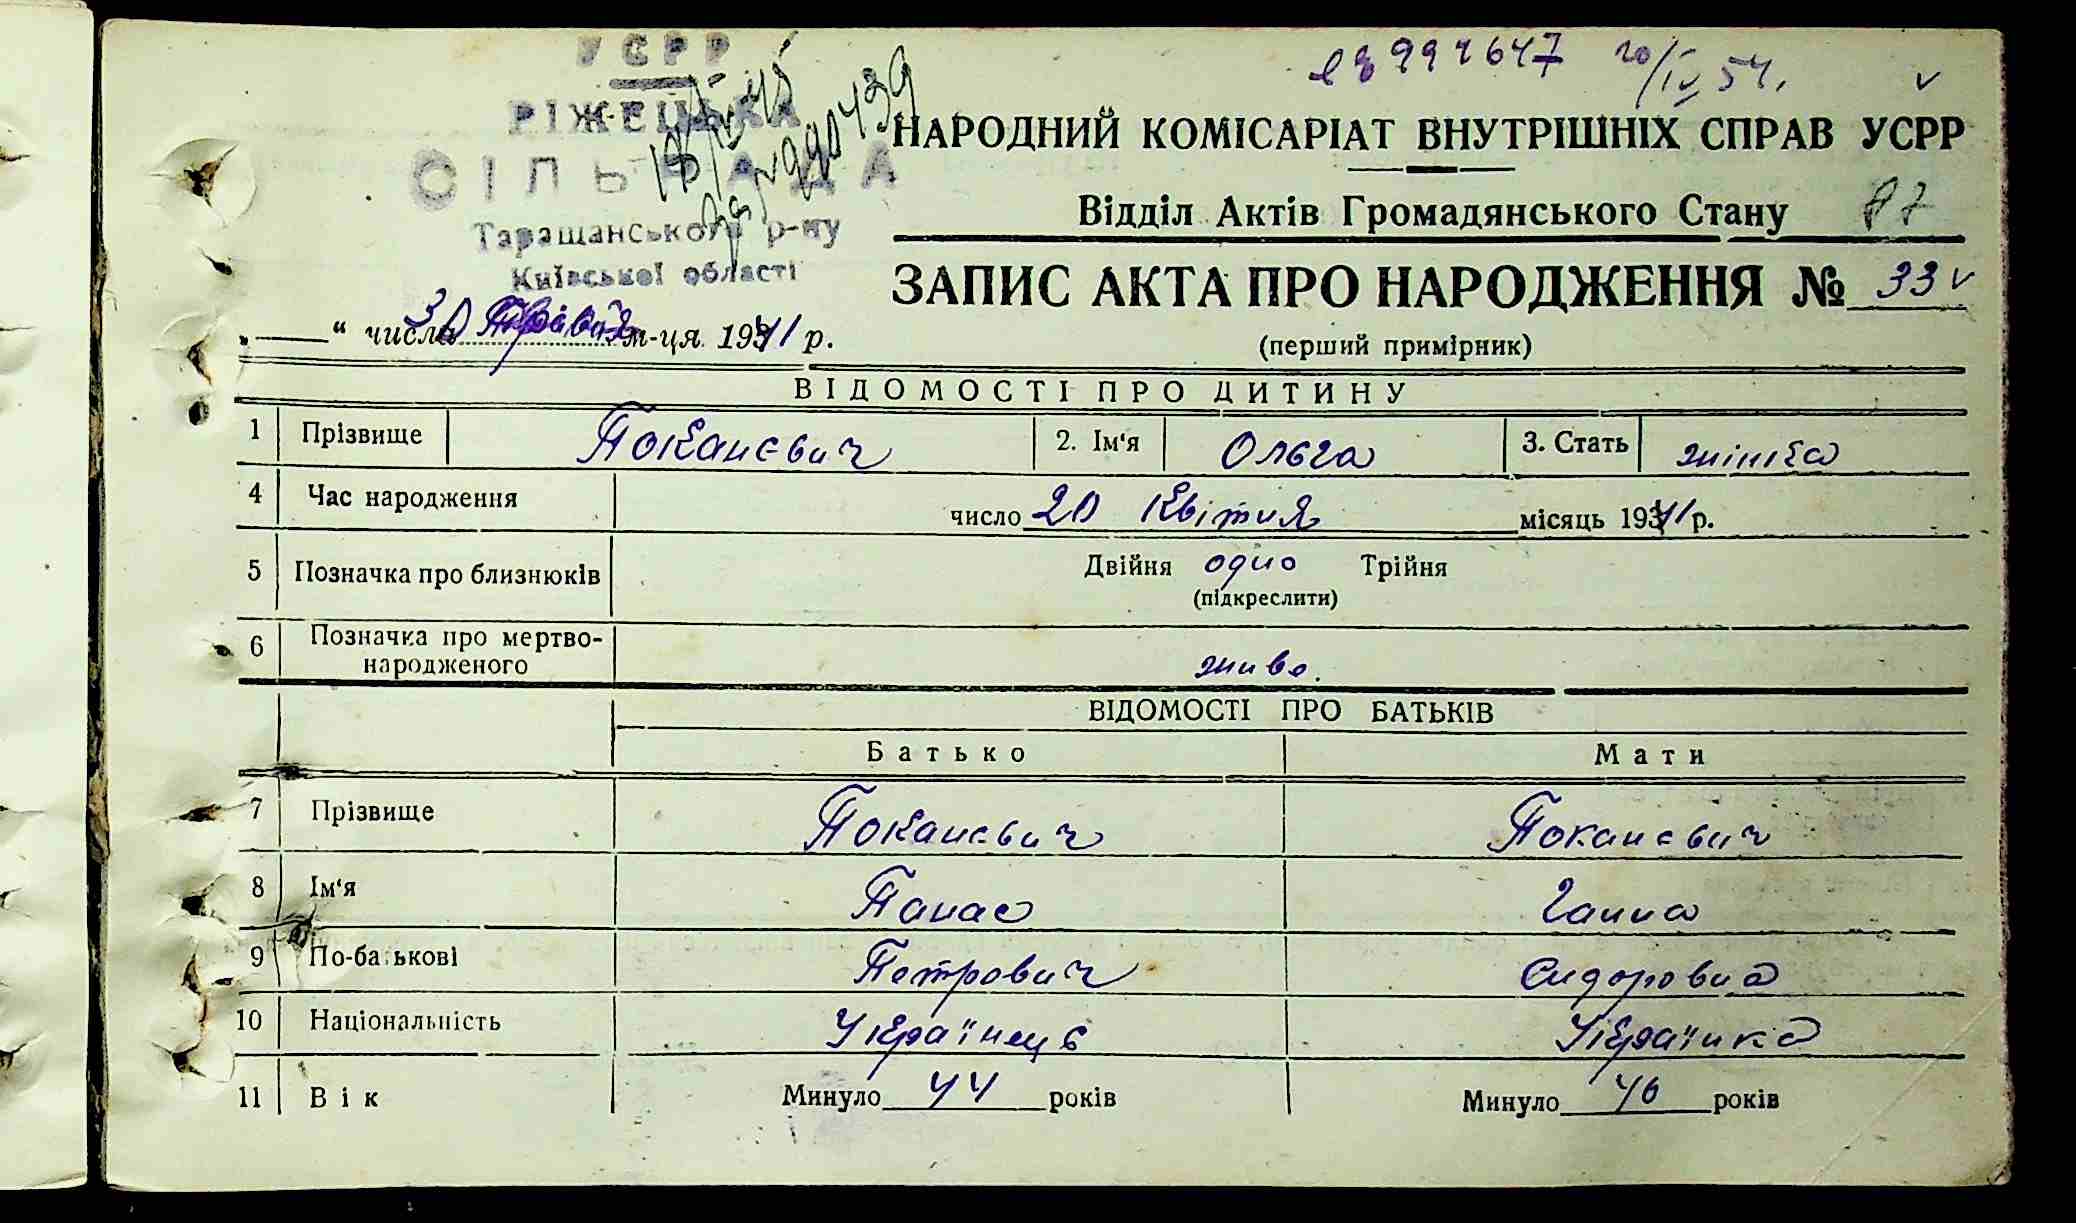 УСРР
РІЖЕЦЬКА
СІЛЬРАДА
Таращанського р-ну
Київської області
20/IV 54.
НАРОДНИЙ КОМІСАРІАТ ВНУТРІШНІХ СПРАВ УСРР
Відділ Актів Громадянського Стану 87
ЗАПИС АКТА ПРО НАРОДЖЕННЯ № 33
(перший примірник)
„ “ числа 30 Травня м-ця 1941 р.
ВІДОМОСТІ ПРО ДИТИНУ
1 Прізвище Токаневич 2. Ім‘я Ольга 3. Стать жініка
4 Час народження число 20 Квітня місяць 1941 р.
5 Позначка про близнюків Двійня одно Трійня
(підкреслити)
6 Позначка про мертво-
народженого живо.
ВІДОМОСТІ ПРО БАТЬКІВ
Батько Мати
7 Прізвище Токаневич Токаневич
8 Ім‘я Панас Ганна
9 По-батькові Петрович Сидоровна
10 Національність Українець Українка
11 Вік Минуло 44 років Минуло 40 років